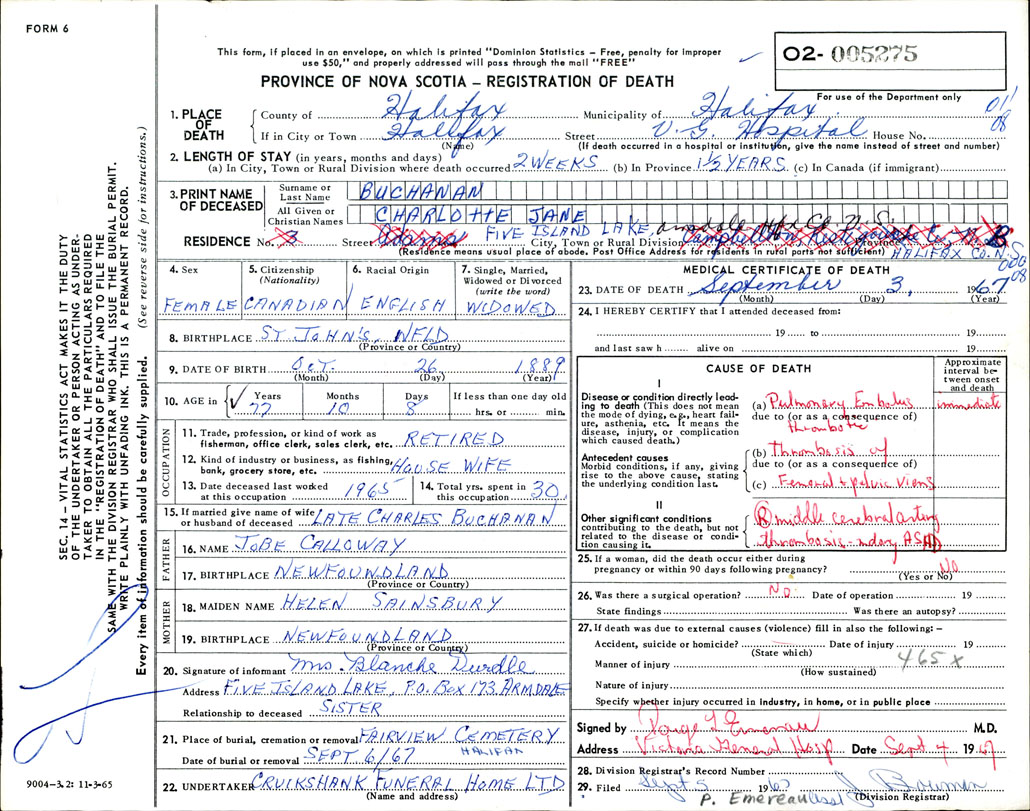 FORM 6
This form, if placed in an envelope, on which is printed "Dominion Statistics – Free, penalty for improper
use $50," and properly addressed will pass through the mail "FREE"
02- 005275
For use of the Department only
PROVINCE OF NOVA SCOTIA – REGISTRATION OF DEATH
1. PLACE OF DEATH
County of Halifax Municipality of Halifax 011
If in City or Town Halifax Street V. G. Hospital House No. 08
(Name) (If death occurred in a hospital or institution, give the name instead of street and number)
2. LENGTH OF STAY (in years, months and days)
(a) In City, Town or Rural Division where death occurred 2 WEEKS (b) In Province 1½ YEARS. (c) In Canada (if immigrant)
3. PRINT NAME OF DECEASED
Surname or Last Name BUCHANAN
All Given or Christian Names CHARLOTTE JANE
FIVE ISLAND LAKE, Armdale Hfx Co. N.S.
RESIDENCE No. 3 Street Adams City, Town or Rural Division Province
(Residence means usual place of abode. Post Office Address for residents in rural parts not sufficient) HALIFAX CO. N.S
08
4. Sex FEMALE
5. Citizenship (Nationality) CANADIAN
6. Racial Origin ENGLISH
7. Single, Married, Widowed or Divorced (write the word) WIDOWED
8. BIRTHPLACE ST. JOHN'S, NFLD
(Province or Country)
9. DATE OF BIRTH Oct. 26 1889
(Month) (Day) (Year)
10. AGE in Years Months Days If less than one day old
77 10 8 hrs. or min.
OCCUPATION
11. Trade, profession, or kind of work as
fisherman, office clerk, sales clerk, etc. RETIRED
12. Kind of industry or business, as fishing,
bank, grocery store, etc. HOUSE WIFE
13. Date deceased last worked
at this occupation 1965
14. Total yrs. spent in
this occupation 30
15. If married give name of wife
or husband of deceased LATE CHARLES BUCHANAN
FATHER
16. NAME JOBE CALLOWAY
17. BIRTHPLACE NEWFOUNDLAND
(Province or Country)
MOTHER
18. MAIDEN NAME HELEN SAINSBURY
19. BIRTHPLACE NEWFOUNDLAND
(Province or Country)
20. Signature of informant Mrs. Blanche Durdle
Address FIVE ISLAND LAKE, P.O. BOX 173 ARMDALE
Relationship to deceased SISTER
21. Place of burial, cremation or removal FAIRVIEW CEMETERY
HALIFAX
Date of burial or removal SEPT 6/67
22. UNDERTAKER CRUIKSHANK FUNERAL HOME LTD
(Name and address)
MEDICAL CERTIFICATE OF DEATH
23. DATE OF DEATH September 3, 1967
(Month) (Day) (Year)
24. I HEREBY CERTIFY that I attended deceased from:
19 to 19
and last saw h alive on 19
CAUSE OF DEATH
Approximate interval between onset and death
I
Disease or condition directly leading to death (This does not mean the mode of dying, e.g., heart failure, asthenia, etc. It means the disease, injury, or complication which caused death.)
(a) Pulmonary Embolus immediate
due to (or as a consequence of)
thrombotic
Antecedent causes
Morbid conditions, if any, giving rise to the above cause, stating the underlying condition last.
(b) Thrombosis of
due to (or as a consequence of)
(c) Femoral & pelvic viens
II
Other significant conditions
contributing to the death, but not related to the disease or condition causing it.
(R) middle cerebral artery
thrombosis - ndary ASHD
25. If a woman, did the death occur either during
pregnancy or within 90 days following pregnancy? No
(Yes or No)
26. Was there a surgical operation? No. Date of operation 19
State findings Was there an autopsy?
27. If death was due to external causes (violence) fill in also the following: –
Accident, suicide or homicide? Date of injury 19
(State which)
465x
Manner of injury
(How sustained)
Nature of injury
Specify whether injury occurred in industry, in home, or in public place
Signed by M.D.
Address Victoria General Hosp Date Sept 4 1967
28. Division Registrar's Record Number
29. Filed Sept 5 1967
(Division Registrar)
P. Emereau
SEC. 14 – VITAL STATISTICS ACT MAKES IT THE DUTY
OF THE UNDERTAKER OR PERSON ACTING AS UNDER-
TAKER TO OBTAIN ALL THE PARTICULARS REQUIRED
IN THE "REGISTRATION OF DEATH" AND TO FILE THE
SAME WITH THE DIVISION REGISTRAR WHO SHALL ISSUE BURIAL PERMIT.
WRITE PLAINLY WITH UNFADING INK. THIS IS A PERMANENT RECORD.
Every item of information should be carefully supplied. (See reverse side for instructions.)
9004-3.2: 11-3-65